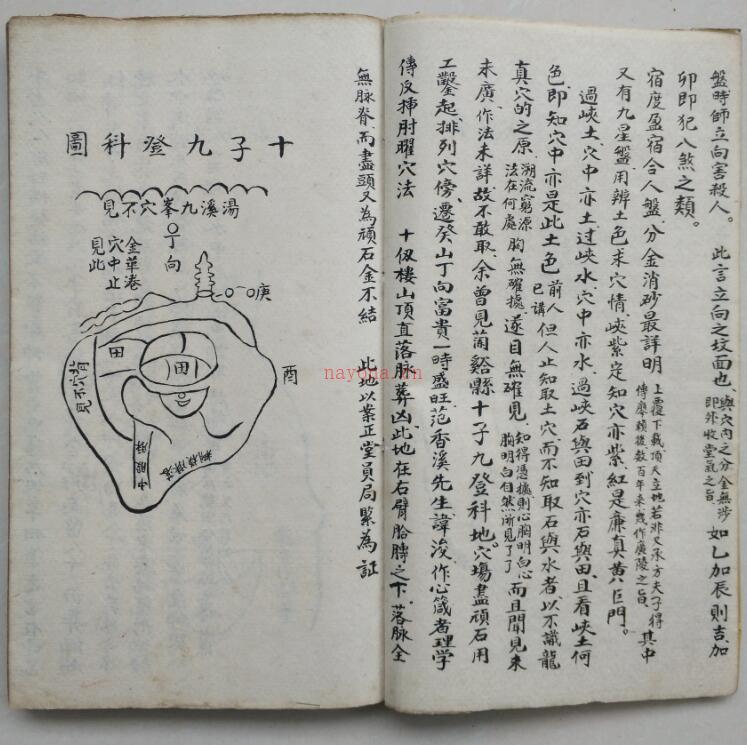 盤時師立向害殺人。 此言立向之坟面也、與穴內之分金無涉即外收堂氣之旨、如乙加辰則吉、加
卯即犯八煞之類。
宿度盈宿合人盤、分金消砂最詳明上覆下載頂天立地若非又承方夫子得其中傳廖賴後数百年来幾作廣陵之旨、
又有九星盤、用辨土色求穴情、峽紫定知穴亦紫、紅是廉真黄巨門。
過峽土、穴中亦土、過峽水、穴中亦水、過峽石與田、到穴亦石與田、且看峽土何
色、即知穴中亦是此土色前人已講但人止知取土穴而不知取石與水者、以不識龍
真穴的之原、溯流窮源法在何處胸無確據、遂目無確見、知得憑據則心胸明白心胸明白自然所見了了而且聞見未
未廣、作法未詳、故不敢取、余曾見蘭谿縣十子九登科地、穴塲盡頑石、用
工鑿起、排列穴傍、遷癸山丁向富貴一時盛旺、范香溪先生諱浚、作心箴者理學
傳反揷肘曜穴法 十伋樓山頂直落脉葬凶、此地在右臂胳膊之下、落脉全
無脉脊、而盡頭又為頑石金不結 此地以業正堂員局縣為証
十子九登科圖
湯溪九峯穴不見
丁向
金華港
穴中止
見此
庚
酉
田
田
背穴不見